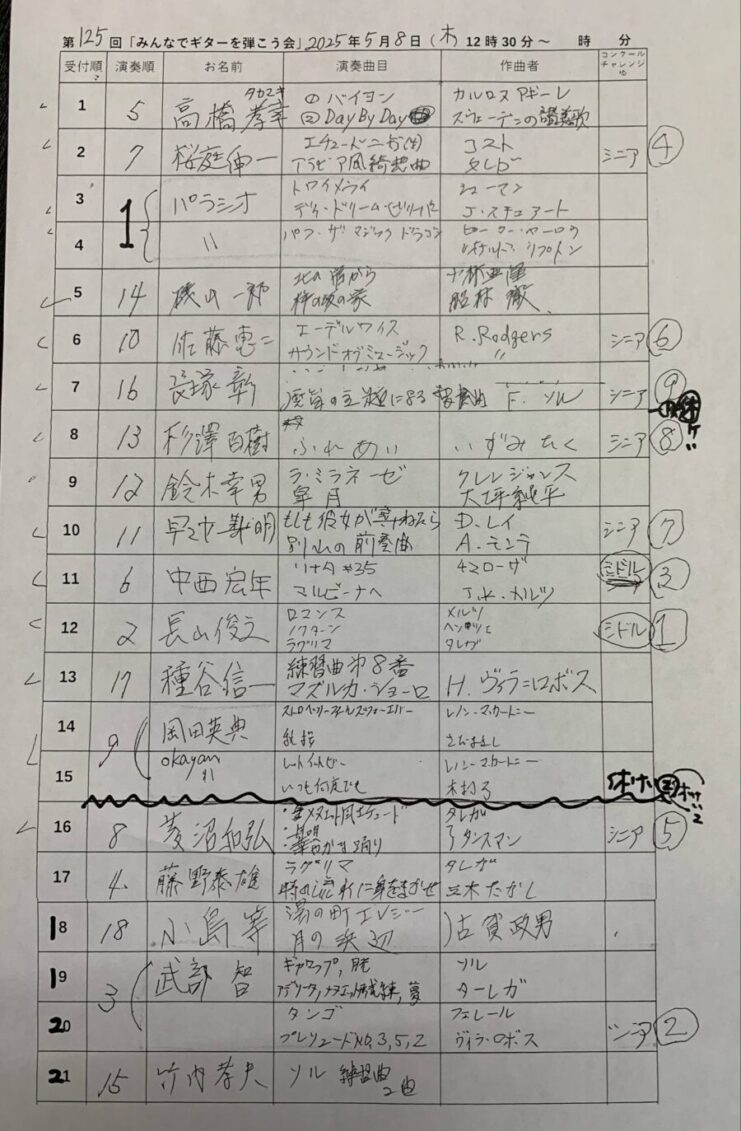 第125回「みんなでギターを弾こう会」2025年5月8日(木) 12時30分~ 時 分
受付順 演奏順 お名前 演奏曲目 作曲者 コンクールチャレンジ
1 5 高橋孝幸 タカユキ ①バイヨン カルロスアギーレ
②Day By Day スウェーデンの讃美歌
2 7 桜庭伸一 エチュード コスト シニア ④
アラビア風綺想曲 タレガ
3 1 パラシオ トロイメライ シューマン
デイ・ドリーム・ビリーバー J.スチュアート
4 〃 パフ・ザ マジック ドラゴン ピーター・ヤーロウ
リプトン
5 14 磯山一郎 北の宿から 小林亜星
6 10 佐藤恵二 エーデルワイス R. Rodgers シニア ⑥
サウンドオブミュージック 〃
7 16 長塚彰 魔笛の主題に依る変奏曲 F. ソル シニア ⑨
8 13 杉澤百樹 ふれあい いずみたく シニア ⑧
9 12 鈴木幸男 ラ・ミラネーゼ クレンジャンス
皐月 大坪純平
10 11 もしも彼女が尋ねたら D.レイ シニア ⑦
別れの前奏曲 A.モンテ
11 6 中西宏年 ソナタ#35 チマローザ ミドル ③
マルビーナへ J.K.メルツ
12 2 長山俊之 ロマンス メルツ ミドル 1
ノクターン ヘンツェ
ラグリマ タレガ
13 17 種谷信一 練習曲第8番 H.ヴィラ=ロボス
マズルカ・ショーロ
14 9 岡田英典 ストロベリーフィールズフォーエバー レノン・マッカートニー
乱指 さだまさし
15 okayan レットイットビー レノン・マッカートニー
いつも何度でも 木村弓
16 8 菱沼和弘 メヌエット風エチュード タレガ シニア ⑤
華やかな踊り タンスマン
17 4 藤野泰雄 ラグリマ タレガ
時の流れに身をまかせ 三木たかし
18 18 小島等 湯の町エレジー 古賀政男
月の浜辺
19 3 武部智 ギャロップ, ソル
アデリータ, 夢 ターレガ
20 タンゴ フェレール シニア ②
プレリュードNo,3,5,2 ヴィラ・ロボス
21 15 竹内孝夫 ソル 練習曲
2曲